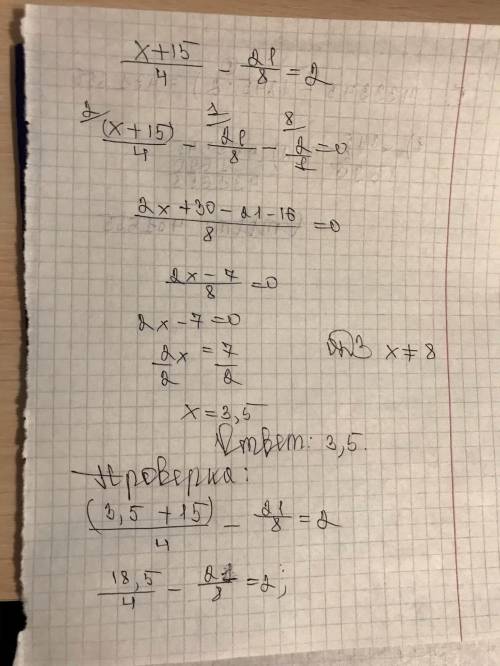 (x+15)/4 - 21/8 = 2
2/ (x+15)/4 - 1/ 21/8 - 8/ 2/1 = 0
(2x+30-21-16)/8 = 0
(2x-7)/8 = 0
2x-7=0
2x/2 = 7/2
ОДЗ x≠8
x=3,5
Ответ: 3,5.
Проверка:
(3,5+15)/4 - 21/8 = 2
18,5/4 - 21/8 = 2;